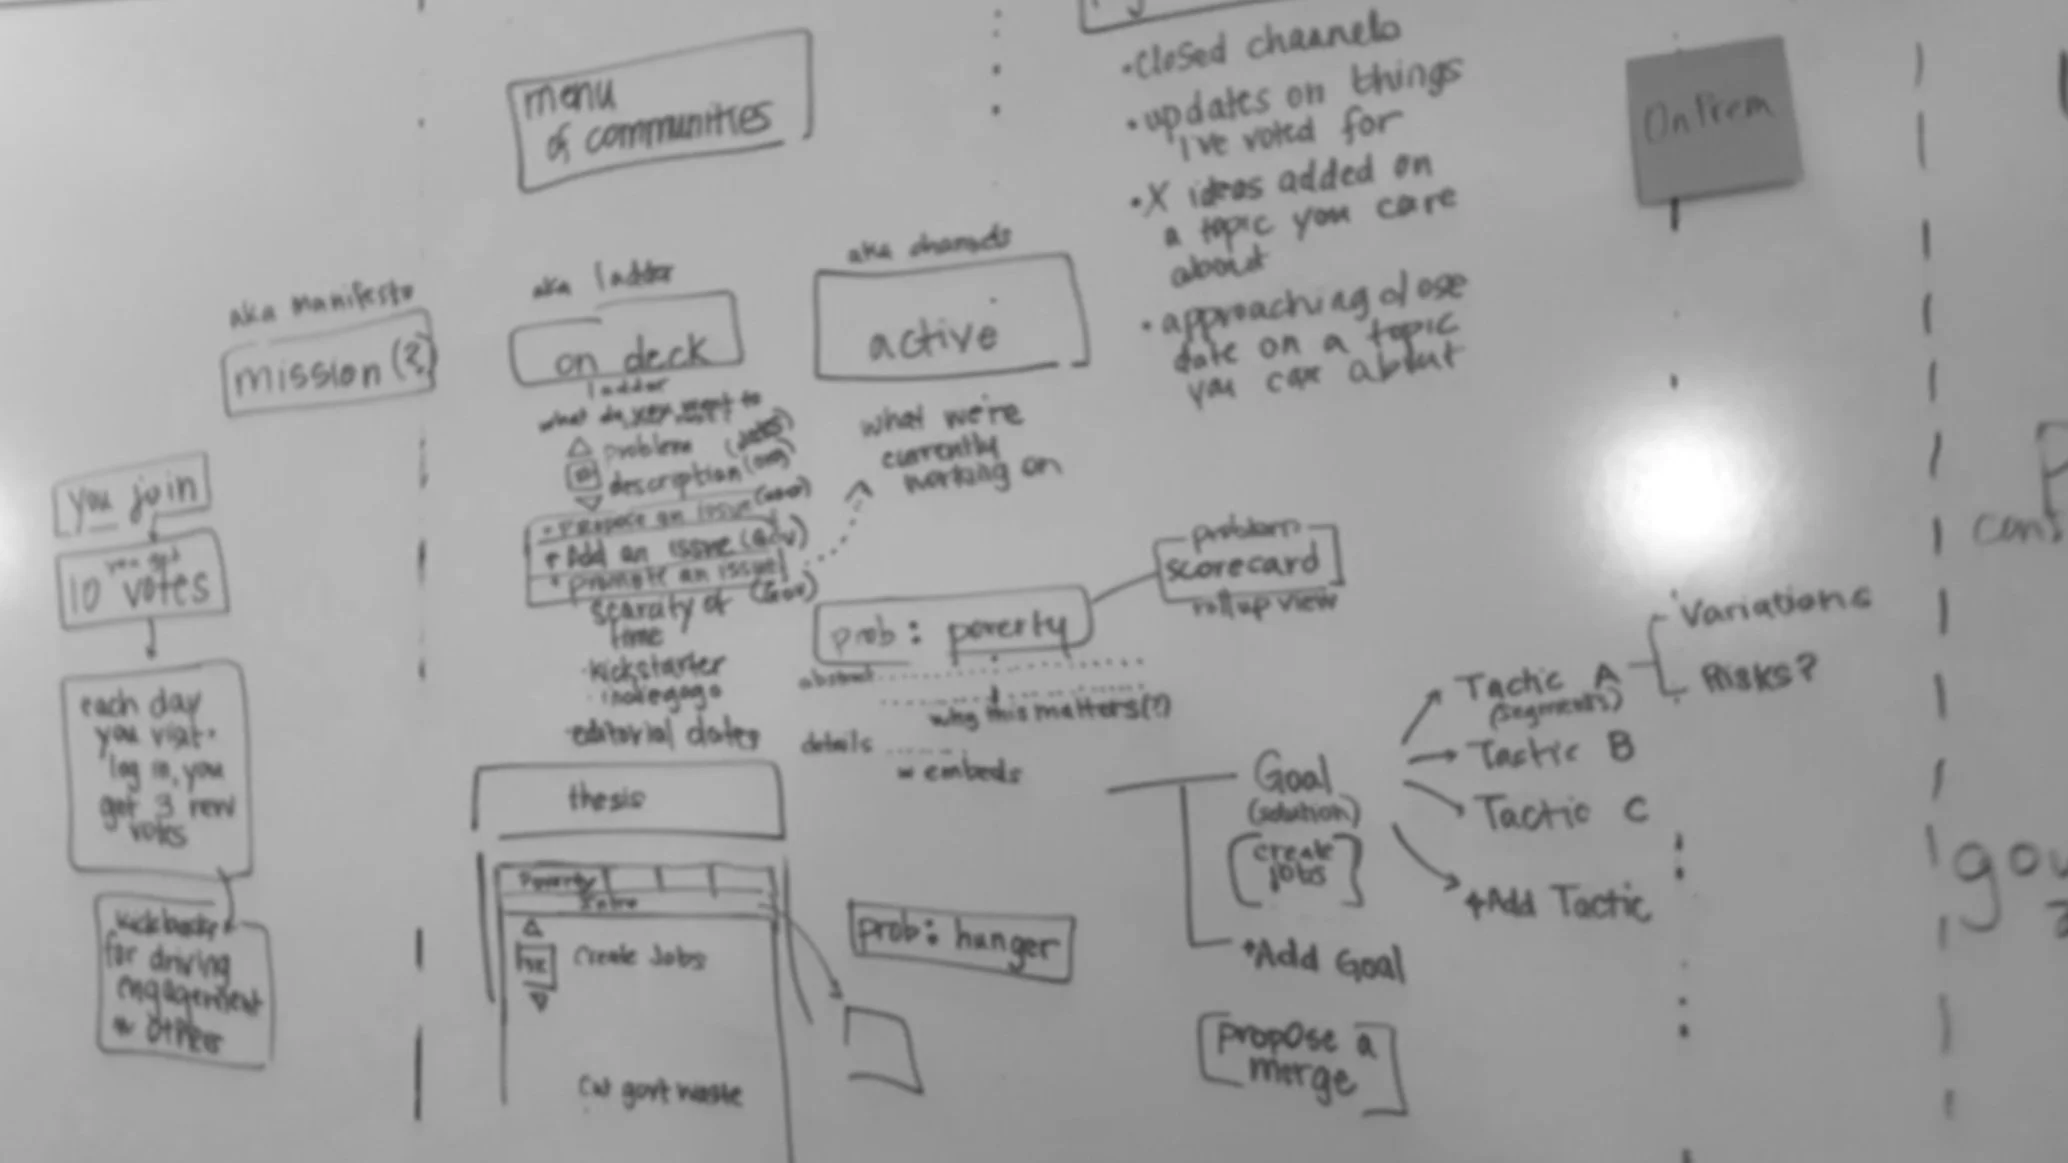 menu
of communities
• closed channels
• updates on things
I've voted for
• X ideas added on
a topic you care
about
• approaching close
date on a topic
you care about
OnPrem
aka manifesto
mission (?)
aka ladder
on deck
ladder
what do you want to
problem
description (org)
• Propose an issue
+ Add an issue (adv)
+ promote an issue
(Gov)
scarcity of
time
• kickstarter
• indiegogo
• editorial dates
aka channels
active
what we're
currently
working on
you join
you get
10 votes
each day
you visit •
log in, you
get 3 new
votes
kickbacks
for driving
engagement
w others
problem
scorecard
rollup view
prob: poverty
abstract
why this matters(?)
details
w embeds
thesis
Poverty
Intro
Create Jobs
cut govt waste
prob: hunger
Goal
(solution)
[create
jobs]
+Add Goal
[propose a
merge]
Tactic A
(segments)
Variations
Risks?
Tactic B
Tactic C
+Add Tactic